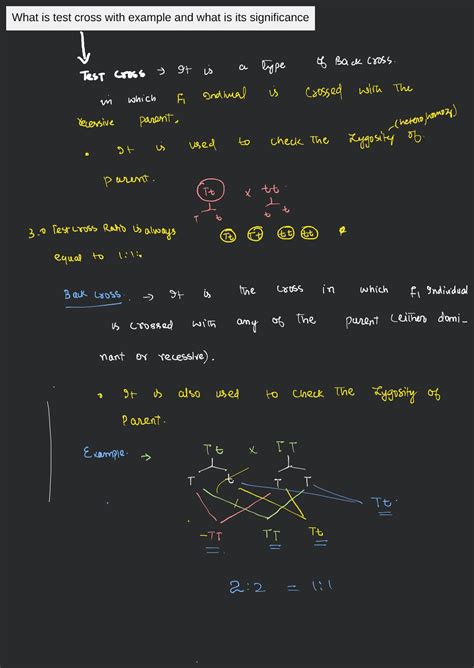 What is test cross with example and what is its significance
Test Cross → It is a type of Back Cross.
in which F1 Indiviual is Crossed with The
recessive parent.
(hetero/homozy)
• It is used to check The Zygosity of
parent.
Tt × tt
T t t t
3.0 Test cross Ratio is always
Tt Tt tt tt
equal to 1:1:
Back Cross. → It is the cross in which F1 Individual
is crossed with any of the parent (either domi-
nant or recessive).
• It is also used to check The Zygosity of
Parent.
Example. →
Tt × TT
T t T T
Tt.
TT TT Tt
2:2 = 1:1